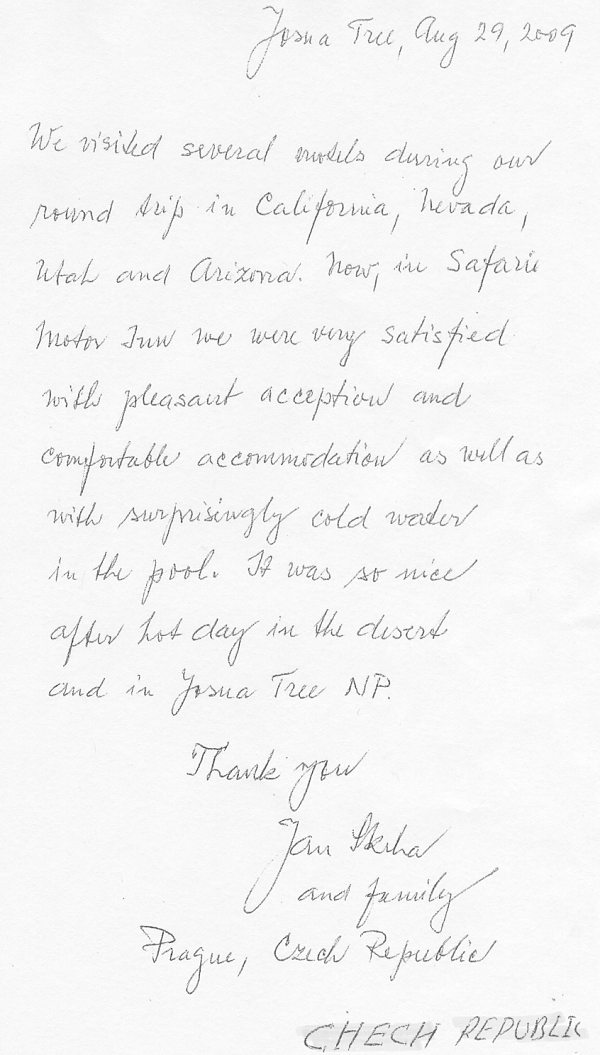 Josua Tree, Aug 29, 2009
We visited several motels during our
round trip in California, Nevada,
Utah and Arizona. Now, in Safari
Motor Inn we were very satisfied
with pleasant acception and
comfortable accommodation as well as
with surprisingly cold water
in the pool. It was so nice
after hot day in the desert
and in Josua Tree NP.
Thank you
Jan
and family
Prague, Czech Republic
CHECH REPUBLIC